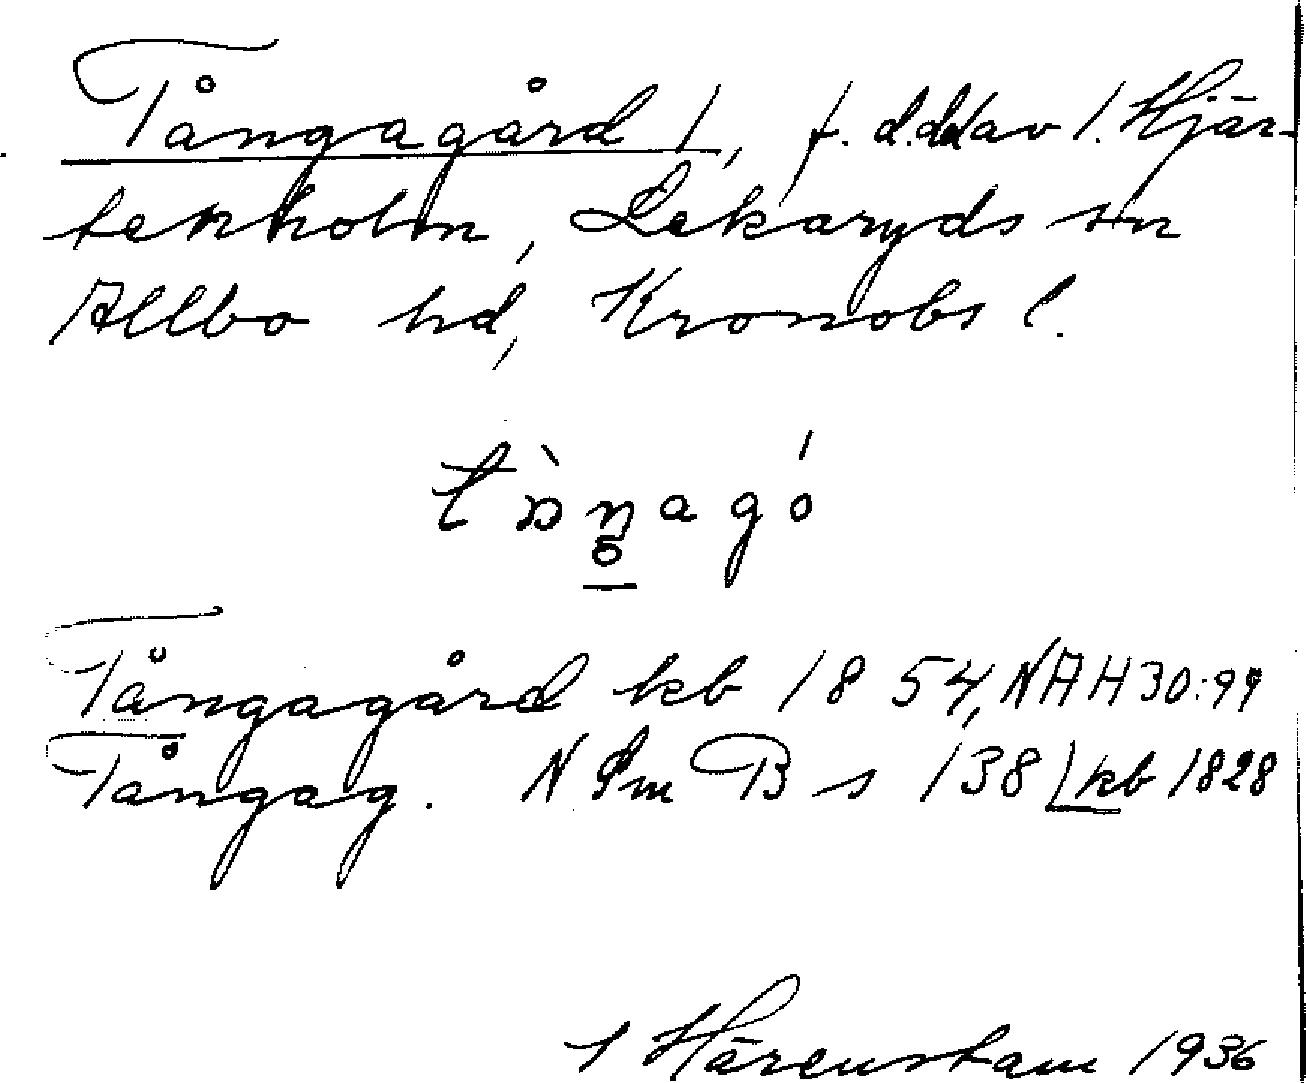 Tångagård /, f. d. del av /. Hjär-
tenholm, Lekaryds sn
Allbo hd, Kronobs l.
Tångagård kb 1854, NAH30:99
Tångag. N Sm B s 138 kb 1828
Härenstam 1936